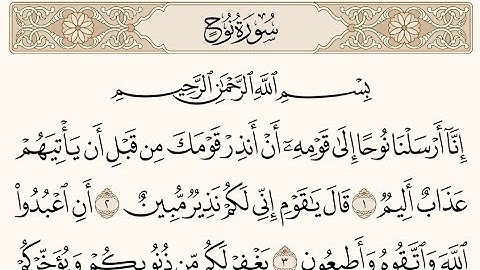 سُورَةُ نُوحٍ
بِسْمِ اللَّهِ الرَّحْمَٰنِ الرَّحِيمِ
إِنَّآ أَرْسَلْنَا نُوحًا إِلَىٰ قَوْمِهِۦٓ أَنْ أَنذِرْ قَوْمَكَ مِن قَبْلِ أَن يَأْتِيَهُمْ
عَذَابٌ أَلِيمٌ ١ قَالَ يَٰقَوْمِ إِنِّى لَكُمْ نَذِيرٌ مُّبِينٌ ٢ أَنِ ٱعْبُدُوا۟
ٱللَّهَ وَٱتَّقُوهُ وَأَطِيعُونِ ٣ يَغْفِرْ لَكُم مِّن ذُنُوبِكُمْ وَيُؤَخِّرْكُمْ